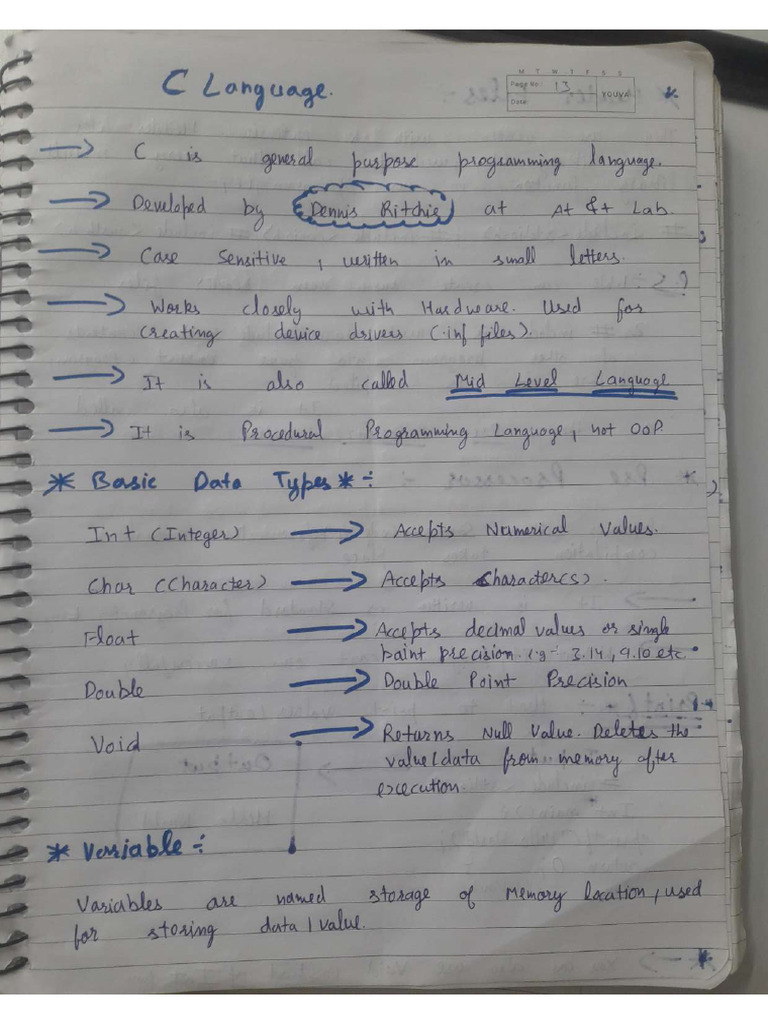 C Language.
M T W T F S S
Page No.: 13
Date: YOUVA
→ C is general purpose programming language.
→ Developed by Dennis Ritchie at At & t Lab.
→ Case Sensitive, written in small letters.
→ Works closely with Hardware. Used for
creating device drivers (.inf files).
→ It is also called Mid Level Language
→ It is Procedural Programming Language, not OOP.
* Basic Data Types * ÷
Int (Integer) → Accepts Numerical Values.
Char (Character) → Accepts Character(s).
Float → Accepts decimal values or single
point precision. e.g- 3.14, 9.10 etc.
Double → Double Point Precision
Void → Returns Null Value. Deletes the
value/data from memory after
execution.
* Variable ÷
Variables are named storage of Memory location, used
for storing data/value.